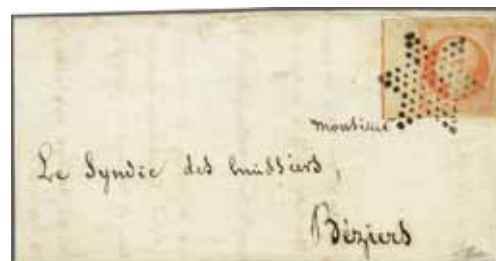 monsieur
Le Syndic des huissiers,
Béziers